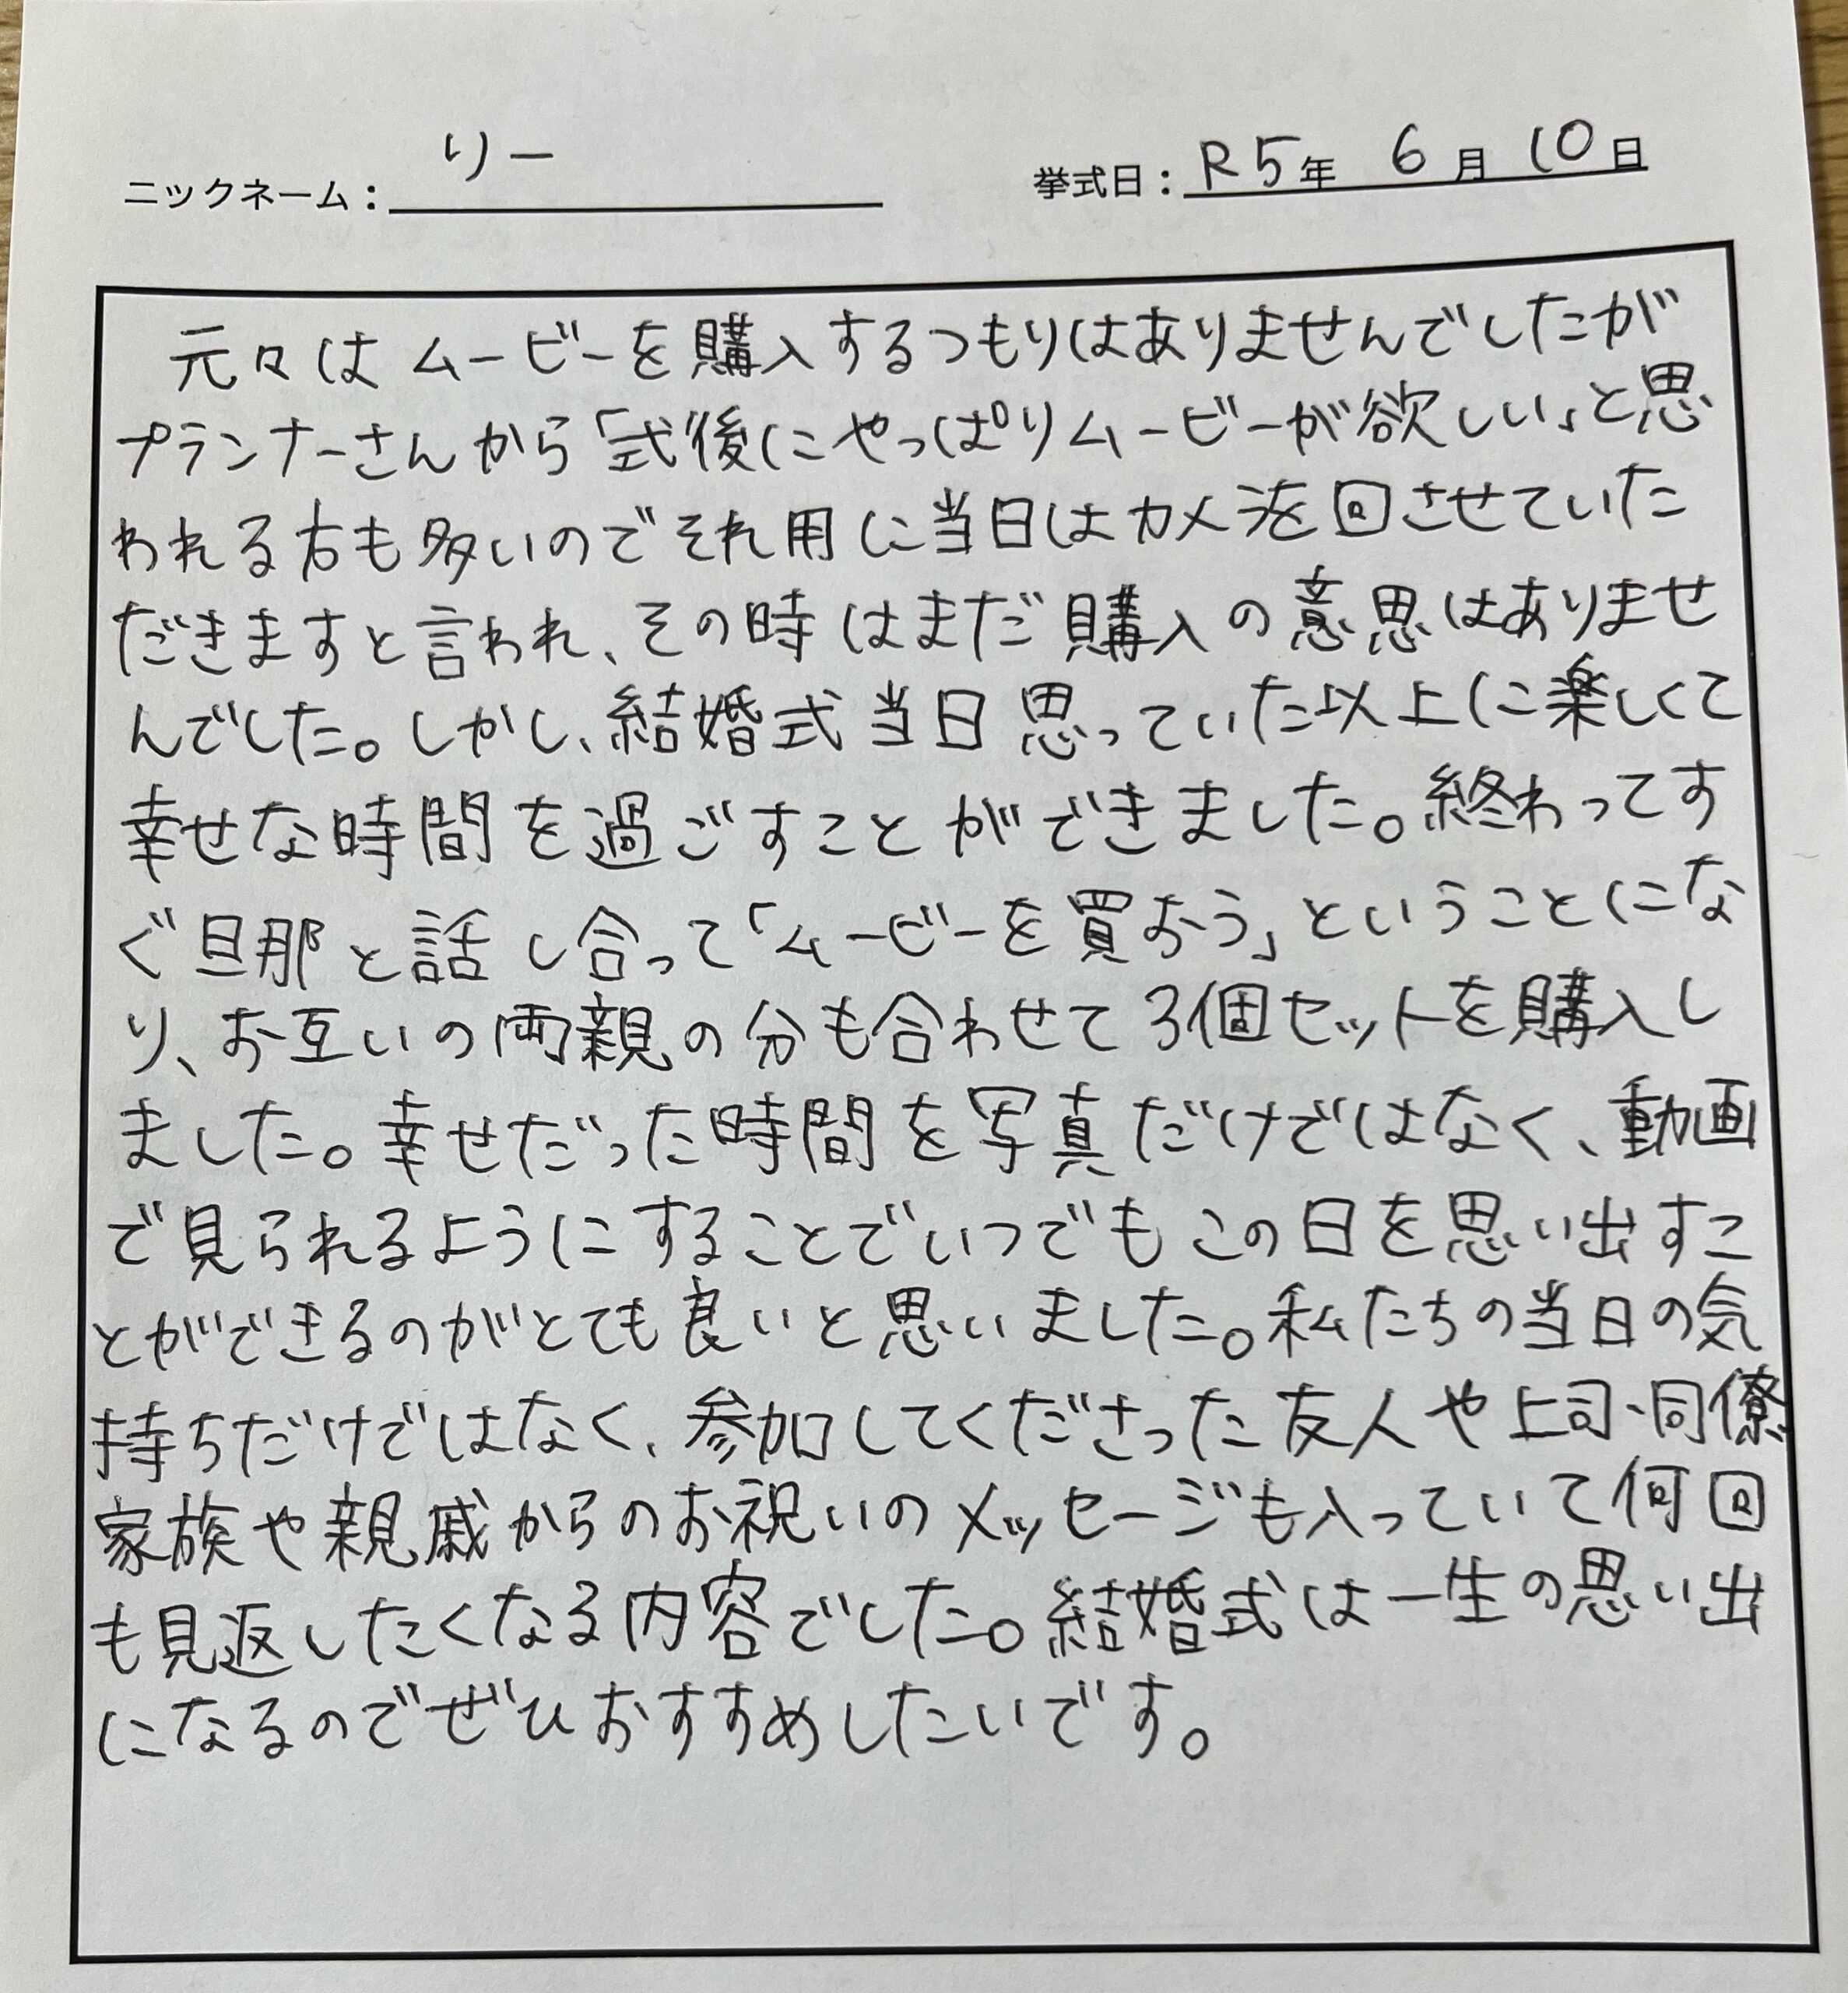 ニックネーム：りー 挙式日：R5年 6月 10日
元々はムービーを購入するつもりはありませんでしたが
プランナーさんから「式後にやっぱりムービーが欲しい」と思
われる方も多いのでそれ用に当日はカメラを回させていた
だきますと言われ、その時はまだ購入の意思はありませ
んでした。しかし、結婚式当日思っていた以上に楽しくて
幸せな時間を過ごすことができました。終わってす
ぐ旦那と話し合って「ムービーを買おう」ということにな
り、お互いの両親の分も合わせて3個セットを購入し
ました。幸せだった時間を写真だけではなく、動画
で見られるようにすることでいつでもこの日を思い出すこ
とができるのがとても良いと思いました。私たちの当日の気
持ちだけではなく、参加してくださった友人や上司・同僚
家族や親戚からのお祝いのメッセージも入っていて何回
も見返したくなる内容でした。結婚式は一生の思い出
になるのでぜひおすすめしたいです。